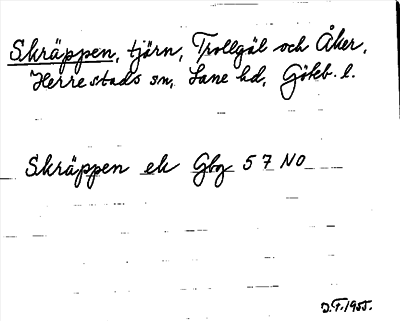 Skräppen, tjärn, Trollgäl och Åker,
Herrestads sn, Lane hd, Göteb. l.
Skräppen ek Gbg 57 NO
J.F. 1955.